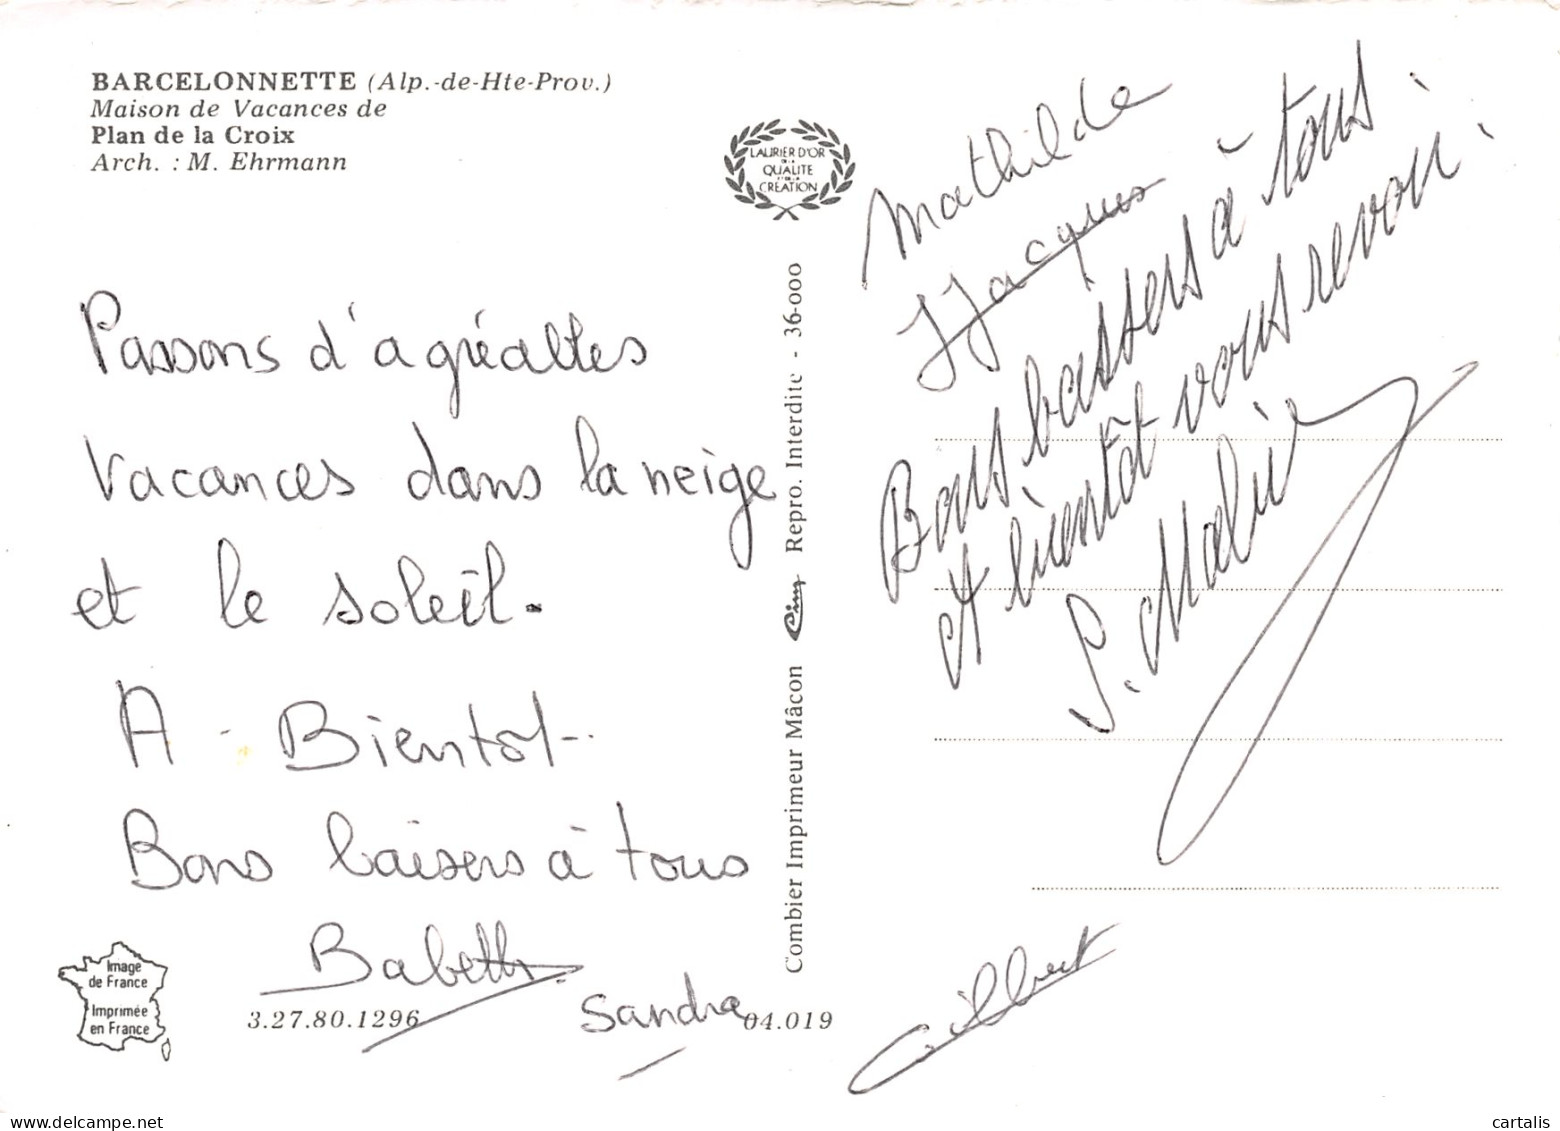 BARCELONNETTE (Alp.-de-Hte-Prov.)
Maison de Vacances de
Plan de la Croix
Arch. : M. Ehrmann
LAURIER D'OR
DE LA
QUALITE
ET DE LA
CREATION
Passons d'agréables
vacances dans la neige
et le soleil.
A - Bientot.
Bons baisers à tous
Babeth
Sandra
Image
de France
Imprimée
en France
3.27.80.1296
04.019
Combier Imprimeur Mâcon Cim Repro. Interdite - 36-000
Mathilde
JJacques
Bons baisers à tous.
et bientôt vous revoir.
Gilbert
cartalis
delcampe.net